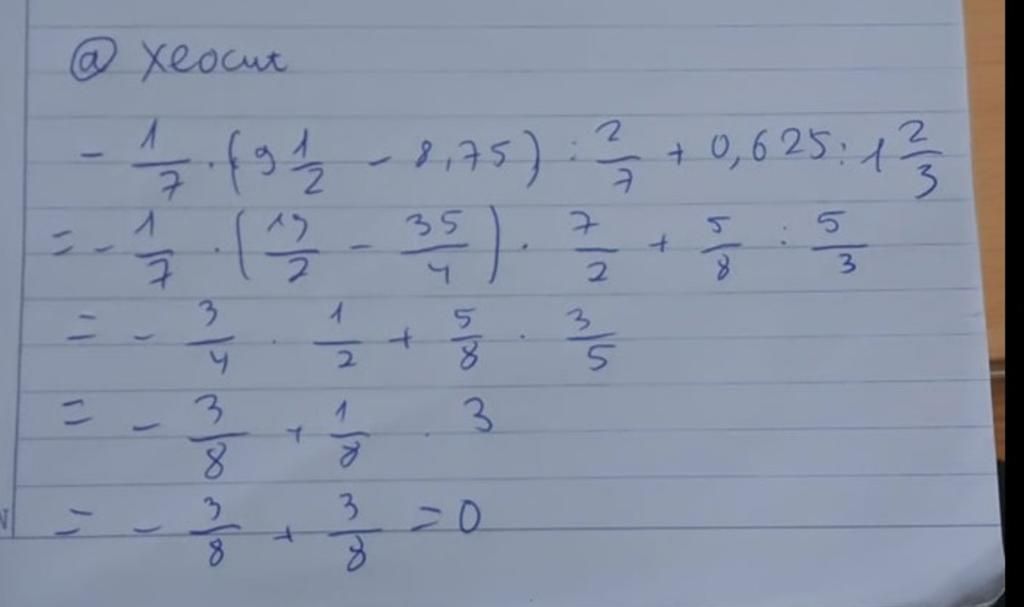 @ xeocut
- 1/7 · (9 1/2 - 8,75) : 2/7 + 0,625 : 1 2/3
= - 1/7 · (19/2 - 35/4) · 7/2 + 5/8 : 5/3
= - 3/4 · 1/2 + 5/8 · 3/5
= - 3/8 + 1/8 · 3
= - 3/8 + 3/8 = 0